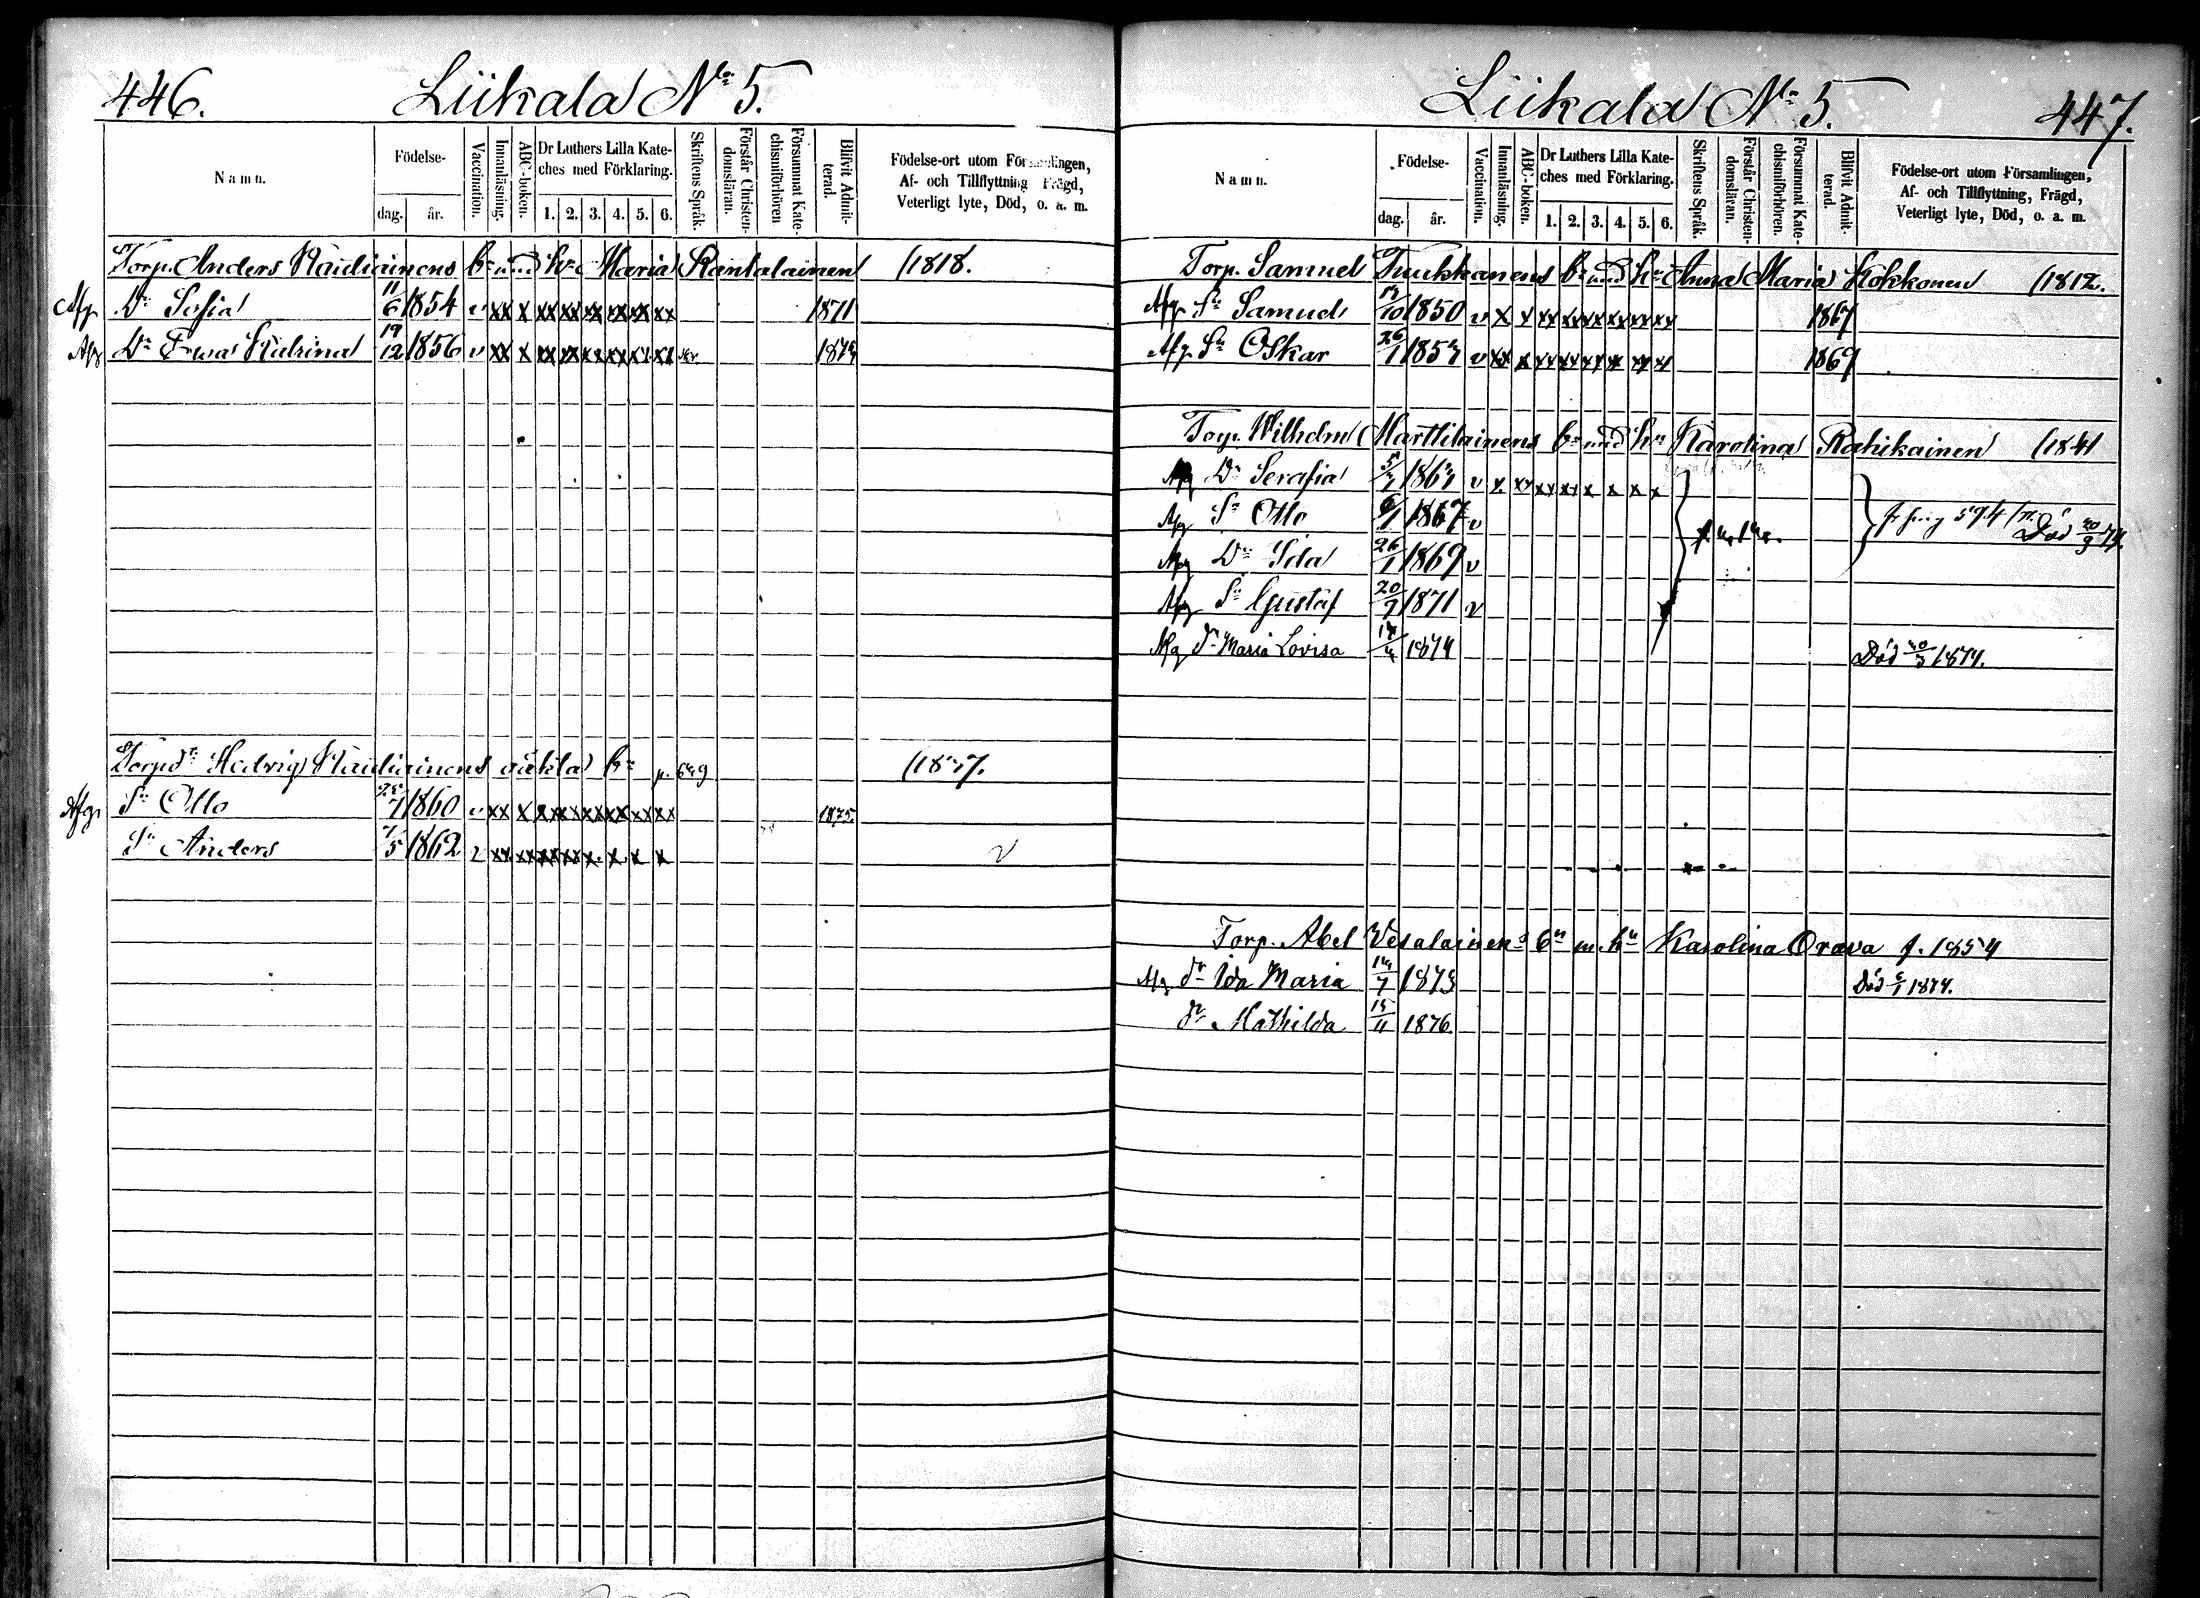 446. Liikala No 5.
Namn.
Födelse-
dag. år.
Vaccination.
Innanläsning.
ABC-boken.
Dr Luthers Lilla Kate-
ches med Förklaring.
1. 2. 3. 4. 5. 6.
Skriftens Språk.
Förstår Christen-
domsläran.
Försummat Kate-
chismiförhören
Blifvit Admit-
terad.
Födelse-ort utom Församlingen,
Af- och Tillflyttning Frägd,
Veterligt lyte, Död, o. a. m.
Torp. Anders Raudiainens bn med hn Maria Rantalainen (1818.
Afg. Dr Sofia 11/6 1854 v xx x xx xx xx xx xx xx 1871
Afg Dr Ewa Katrina 19/12 1856 v xx x xx xx xx xx xx xx
Torpdr Hedvig Raudiainens oäkta bn
Afg. Sn Otto 1860 v xx x xx xx xx xx xx xx 1875
Sn Anders 1/5 1862 v xx xx xx xx x x x x v
Liikala No 5. 447.
Namn.
Födelse-
dag. år.
Vaccination.
Innanläsning.
ABC-boken.
Dr Luthers Lilla Kate-
ches med Förklaring.
1. 2. 3. 4. 5. 6.
Skriftens Språk.
Förstår Christen-
domsläran.
Försummat Kate-
chismiförhören.
Blifvit Admit-
terad.
Födelse-ort utom Församlingen,
Af- och Tillflyttning, Frägd,
Veterligt lyte, Död, o. a. m.
Torp. Samuel Tuukkanens bn med hn Anna Maria Kokkonen (1812.
Afg Sn Samuel 1850 v x x xx xx xx xx xx xx 1867
Afg. Sn Oskar 26/1 v xx x xx xx xx xx xx xx 1869
Torp. Wilhelm Marttilainens bn med hn Karolina Rahikainen (1841
Afg Dr Serafia v x xx xx xx x x x x
Afg Sn Otto 6/1 1867 v Död
Afg Dr Ida 26/1 1869 v
Afg Sn Gustaf 20/7 1871 v
Afg dr Maria Lovisa 1874 Död 1874.
Torp. Abel Vesalainens bn m. hn Karolina Orava f. 1854
Afg dr Ida Maria 1873 Död 1874.
dr Mathilda 15/11 1876